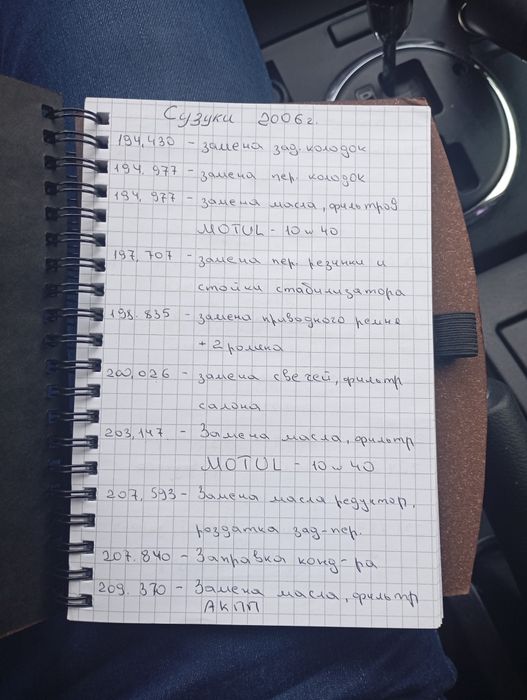 Сузуки 2006г.
194,430 - замена зад. колодок
194.977 - замена пер. колодок
194.977 - замена масла, фильтров
MOTUL - 10w40
197,707 - замена пер. резинки и
стойки стабилизатора
198.835 - замена приводного ремня
+ 2 ролика
200,026 - замена свечей, фильтр
салона
203,147 - Замена масла, фильтр
MOTUL - 10w40
207,593 - Замена масла редуктор,
роздатка зад-пер.
207.840 - Заправка конд-ра
209.370 - Замена масла, фильтр
АКПП